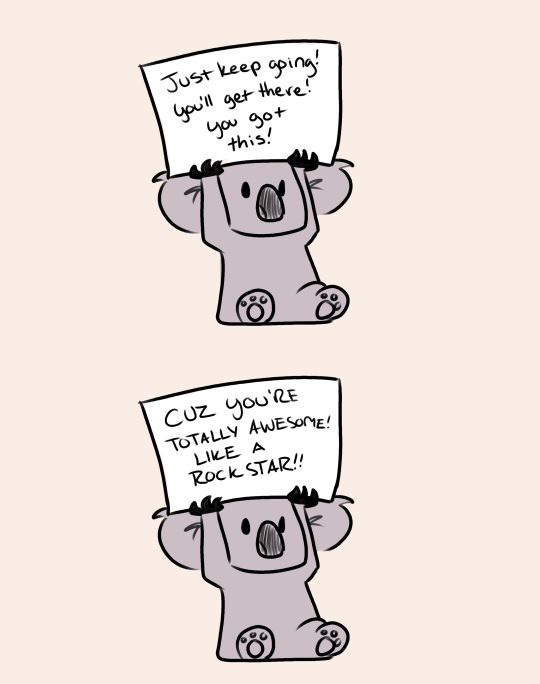 Just keep going!
you'll get there!
you got
this!
CUZ YOU'RE
TOTALLY AWESOME!
LIKE A
ROCKSTAR!!